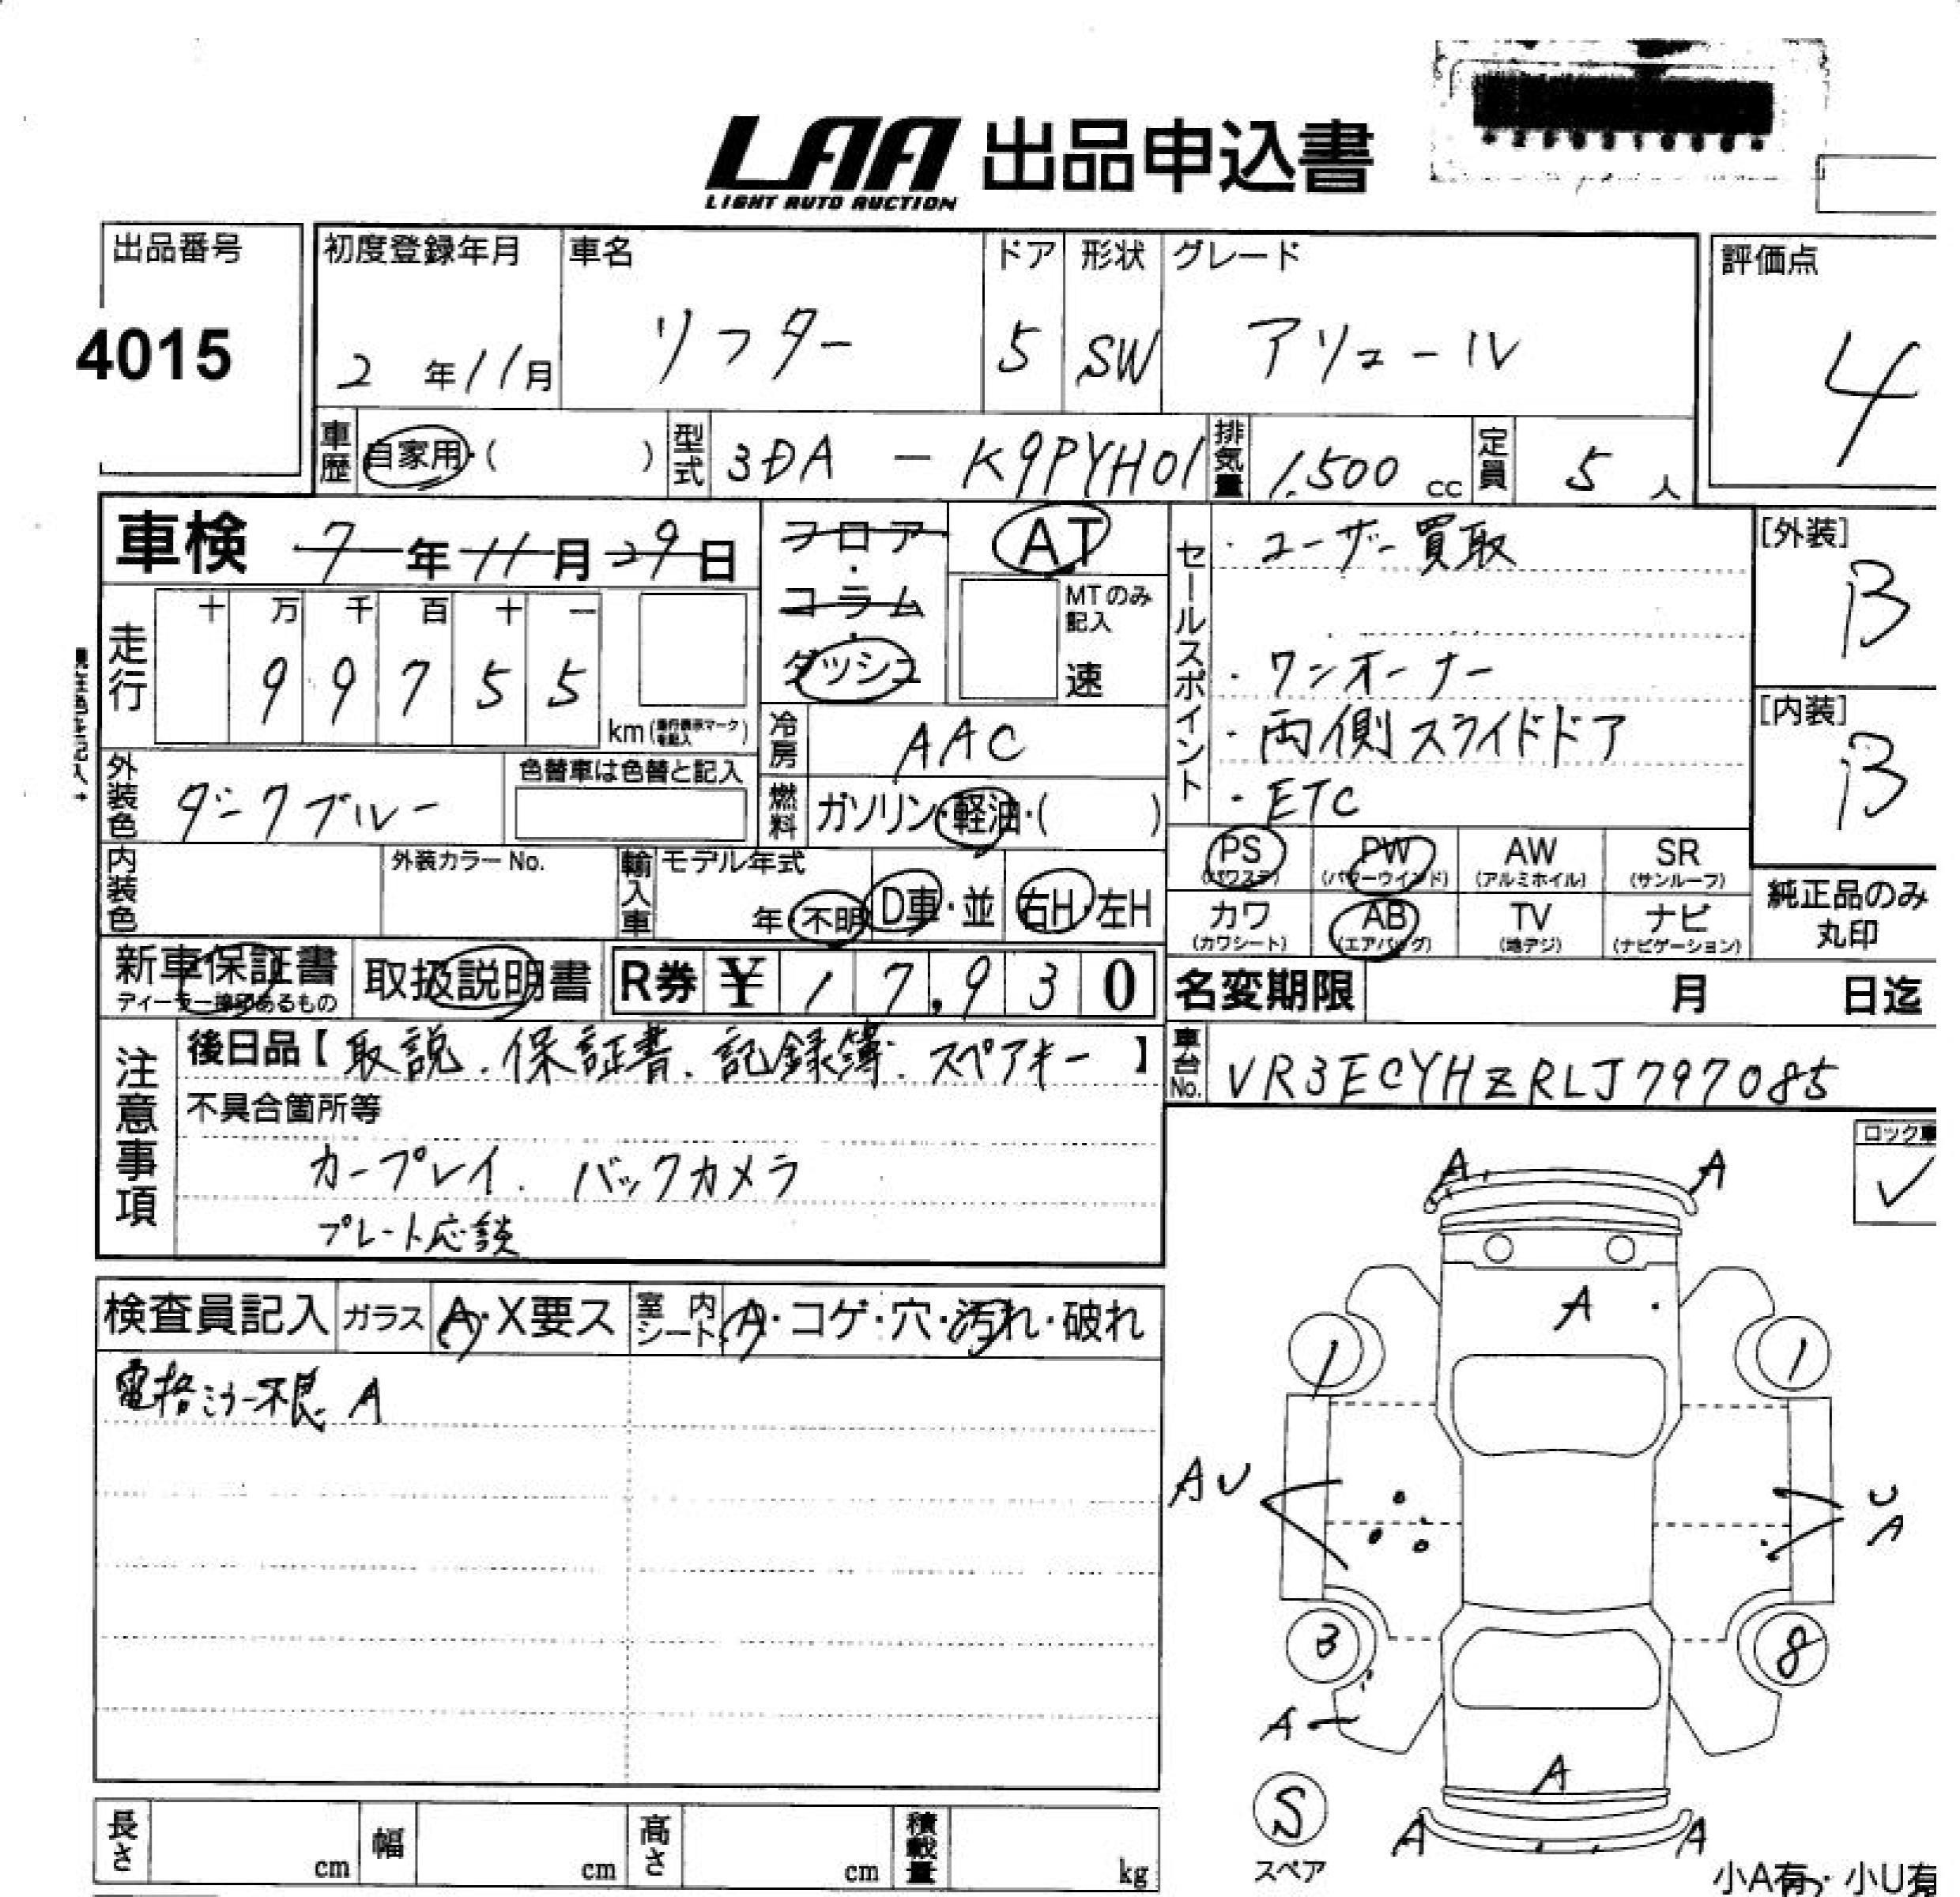 LAA 出品申込書
LIGHT AUTO AUCTION
出品番号
4015
初度登録年月
2年11月
車名
リフター
ドア
5
形状
SW
グレード
アリュール
評価点
4
車歴
自家用・( )
型式
3DA - K9PYH01
排気量
1,500 cc
定員
5 人
車検 7年11月29日
フロア・コラム・ダッシュ
AT
MTのみ記入
速
走行
十 万 千 百 十 一
9 9 7 5 5
km
冷房
AAC
外装色
ダークブルー
色替車は色替と記入
燃料
ガソリン・軽油・( )
内装色
外装カラーNo.
輸入車
モデル年式
年・不明
D車・並
右H 左H
セールスポイント
・ユーザー買取
・ワンオーナー
・両側スライドドア
・ETC
[外装]
B
[内装]
B
PS (パワステ)
PW (パワーウインド)
AW (アルミホイル)
SR (サンルーフ)
カワ (カワシート)
AB (エアバッグ)
TV (地デジ)
ナビ (ナビゲーション)
純正品のみ
丸印
新車保証書
取扱説明書
R券 ¥ 17,930
名変期限 月 日迄
注意事項
後日品【取説.保証書.記録簿.スペアキー】
不具合箇所等
カープレイ. バックカメラ
プレート応談
車台No.
VR3ECYHZRLJ797085
ロック車
✓
検査員記入
ガラス A・X要ス
室内シート A・コゲ・穴・汚れ・破れ
電格ミラー不良 A
A A
A
1 1
AU
U
A
3 8
A
A
S
スペア
A A
長さ cm
幅 cm
高さ cm
積載量 kg
小A有・小U有